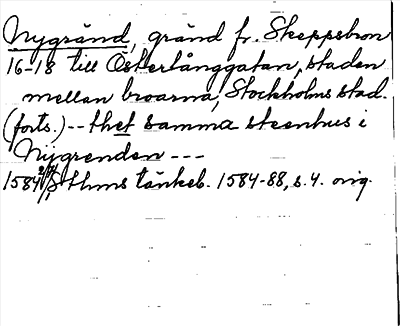 Nygränd, gränd fr. Skeppsbron
16-18 till Österlånggatan, staden
mellan broarna, Stockholms stad.
(forts.) -- thet samma steenhus i
Nygrenden ---
1584 2/7, Sthms tänkeb. 1584-88, s. 4. orig.